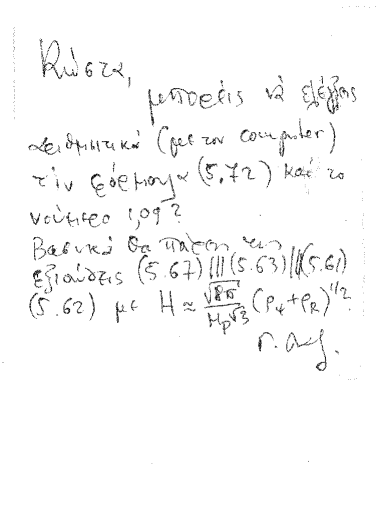 Κώστα,
μπορείς νὰ ελέγξεις
αριθμητικά (με τον computer)
την φόρμουλα (5.72) και το
νούμερο 1,09?
Βασικά θα πάρεις τις
εξισώσεις (5.67) (5.63) (5.61)
(5.62) με H ≈ √8π/Mp√3 (ρψ+ρR)^1/2.
Γ.